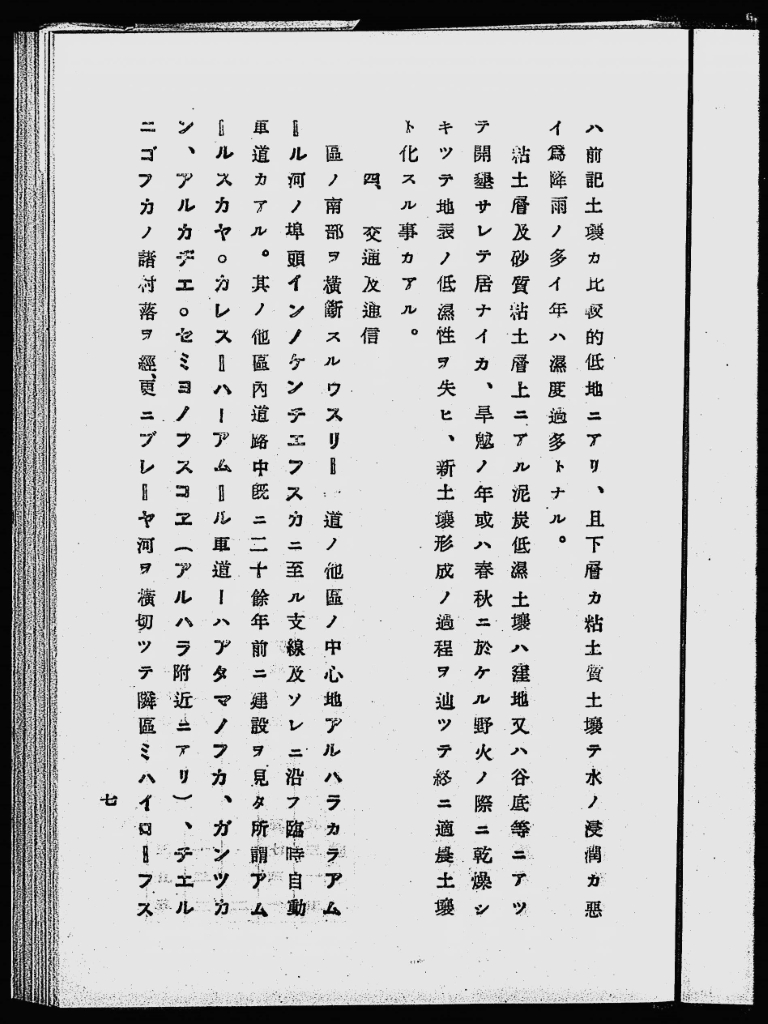 ハ前記土壤カ比較的低地ニアリ、且下層カ粘土質土壤テ水ノ浸潤カ惡
イ爲降雨ノ多イ年ハ濕度過多トナル。
粘土層及砂質粘土層上ニアル泥炭低濕土壤ハ窪地又ハ谷底等ニアツ
テ開墾サレテ居ナイカ、旱魃ノ年或ハ春秋ニ於ケル野火ノ際ニ乾燥シ
キツテ地表ノ低濕性ヲ失ヒ、新土壤形成ノ過程ヲ辿ツテ終ニ適農土壤
ト化スル事カアル。
四、交通及通信
區ノ南部ヲ橫斷スルウスリー道ノ他區ノ中心地アルハラカラアム
ール河ノ埠頭インノケンチエフスカニ至ル支線及ソレニ沿フ臨時自動
車道カアル。其ノ他區內道路中既ニ二十餘年前ニ建設ヲ見タ所謂アム
ールスカヤ。カレスーハーアムール車道ーハアタマノフカ、ガンツカ
ン、アルカデエ。セミヨノフスコヱ(アルハラ附近ニアリ)、チエル
ニゴフカノ諸村落ヲ經、更ニブレーヤ河ヲ橫切ツテ隣區ミハイローフス
七